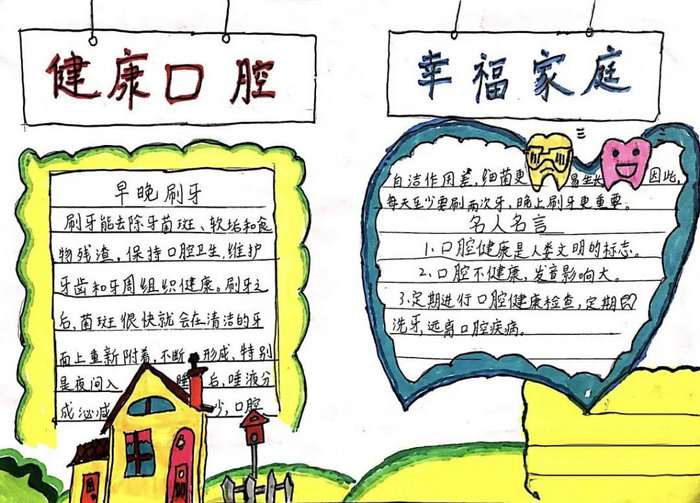 健康口腔
幸福家庭
早晚刷牙
刷牙能去除牙菌斑、软垢和食
物残渣，保持口腔卫生，维护
牙齿和牙周组织健康。刷牙之
后，菌斑很快就会在清洁的牙
面上重新附着，不断形成、特别
是夜间入睡后，唾液分
成泌减少，口腔
自洁作用差，细菌更易生长因此，
每天至少要刷两次牙，晚上刷牙更重要。
名人名言
1、口腔健康是人类文明的标志。
2、口腔不健康，发音影响大。
3、定期进行口腔健康检查，定期
洗牙，远离口腔疾病。